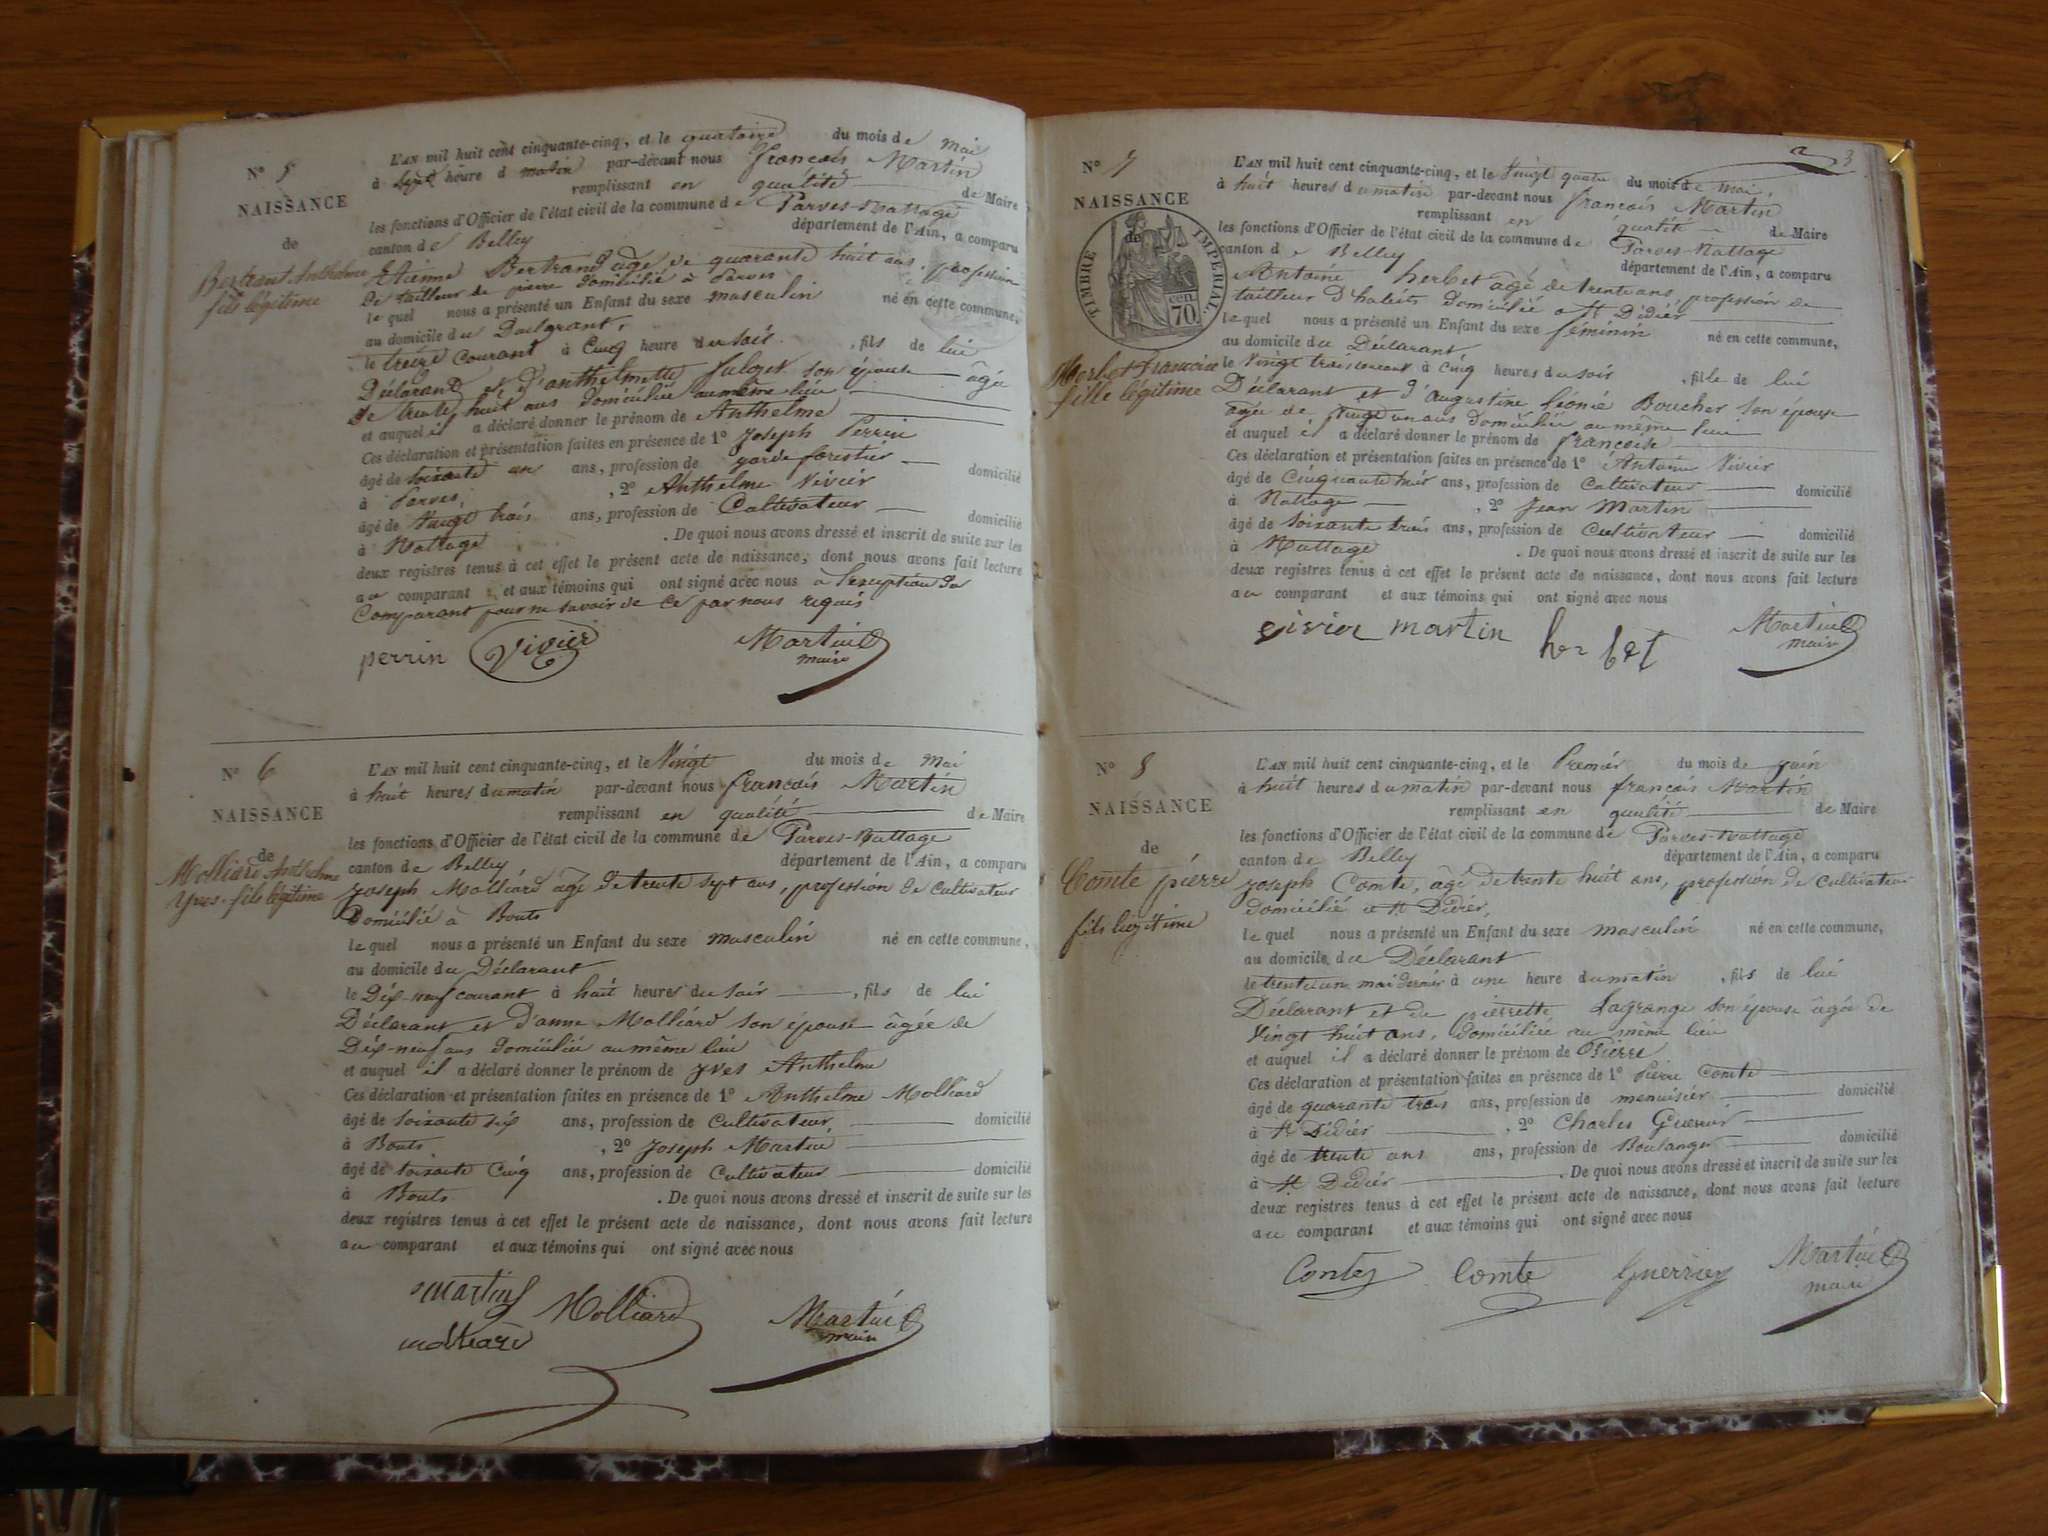 N° 5
NAISSANCE
de
Bertrant Anthelme
fils légitime
L'AN mil huit cent cinquante-cinq, et le quatorze du mois de mai
à sept heure d matin par-devant nous françois Martin
remplissant en qualité de Maire
les fonctions d'Officier de l'état civil de la commune de Parves-Nattage
canton de Belley département de l'Ain, a comparu
Etienne Bertrand âgé de quarante huit ans, profession
de tailleur de pierre domicilié à Parves
le quel nous a présenté un Enfant du sexe masculin né en cette commune,
au domicile du Déclarant,
le treize courant à Cinq heure du soir, fils de lui
Déclarant et d'anthelmette son épouse âgée
de trente huit ans domiciliée au même lieu
et auquel il a déclaré donner le prénom de Anthelme
Ces déclaration et présentation faites en présence de 1° Joseph Perrin
âgé de soixante un ans, profession de garde forestier domicilié
à Parves, , 2° Anthelme Vivier
âgé de Vingt trois ans, profession de Cultivateur domicilié
à Nattage . De quoi nous avons dressé et inscrit de suite sur les
deux registres tenus à cet effet le présent acte de naissance, dont nous avons fait lecture
au comparant et aux témoins qui ont signé avec nous a l'exception du
Comparant pour ne savoir de ce par nous requis
perrin Vivier Martin
maire
N° 6
NAISSANCE
de
Molliard Anthelme
Yves fils légitime
L'AN mil huit cent cinquante-cinq, et le Vingt du mois de mai
à huit heures du matin par-devant nous françois Martin
remplissant en qualité de Maire
les fonctions d'Officier de l'état civil de la commune de Parves-Nattage
canton de Belley département de l'Ain, a comparu
Joseph Molliard âgé de trente sept ans, profession de cultivateur
Domicilié à Bouts
le quel nous a présenté un Enfant du sexe masculin né en cette commune,
au domicile du Déclarant
le Dix-neuf courant à huit heures du soir, fils de lui
Déclarant et d'anne Molliard son épouse âgée de
Dix-neuf ans domiciliée au même lieu
et auquel il a déclaré donner le prénom de yves Anthelme
Ces déclaration et présentation faites en présence de 1° Anthelme Molliard
âgé de soixante six ans, profession de Cultivateur, domicilié
à Bouts , 2° Joseph Martin
âgé de soixante Cinq ans, profession de Cultivateur domicilié
à Bouts . De quoi nous avons dressé et inscrit de suite sur les
deux registres tenus à cet effet le présent acte de naissance, dont nous avons fait lecture
au comparant et aux témoins qui ont signé avec nous
martin Molliard Martin
molliard maire
3
N° 7
NAISSANCE
de
TIMBRE IMPERIAL
cen. 70
Herbet Françoise
fille légitime
L'AN mil huit cent cinquante-cinq, et le Vingt quatre du mois de mai,
à huit heures du matin par-devant nous françois Martin
remplissant en qualité de Maire
les fonctions d'Officier de l'état civil de la commune de Parves-Nattage
canton de Belley département de l'Ain, a comparu
Antoine herbet âgé de trente ans, profession de
tailleur d'habits domicilié a St Didier
le quel nous a présenté un Enfant du sexe féminin né en cette commune,
au domicile du Déclarant
le Vingt trois courant à Cinq heures du soir, fille de lui
Déclarant et d'augustine Léonie Boucher son épouse
âgée de Vingt un ans domiciliée au même lieu
et auquel il a déclaré donner le prénom de françoise
Ces déclaration et présentation faites en présence de 1° Antoine Vivier
âgé de Cinquante huit ans, profession de Cultivateur domicilié
à Nattage , 2° Jean Martin
âgé de soixante trois ans, profession de Cultivateur domicilié
à Nattage . De quoi nous avons dressé et inscrit de suite sur les
deux registres tenus à cet effet le présent acte de naissance, dont nous avons fait lecture
au comparant et aux témoins qui ont signé avec nous
vivier martin herbet Martin
maire
N° 8
NAISSANCE
de
Comte pierre
fils légitime
L'AN mil huit cent cinquante-cinq, et le Premier du mois de juin
à huit heures du matin par-devant nous françois Martin
remplissant en qualité de Maire
les fonctions d'Officier de l'état civil de la commune de Parves-Nattage
canton de Belley département de l'Ain, a comparu
joseph Comte, âgé de trente huit ans, profession de cultivateur
domicilié a St Didier,
le quel nous a présenté un Enfant du sexe masculin né en cette commune,
au domicile du Déclarant
le trente un mai dernier à une heure du matin, fils de lui
Déclarant et de pierrette Lagrange son épouse âgée de
Vingt huit ans, domiciliée au même lieu
et auquel il a déclaré donner le prénom de Pierre
Ces déclaration et présentation faites en présence de 1° Pierre Comte
âgé de quarante trois ans, profession de menuisier domicilié
à St Didier , 2° Charles Guerrier
âgé de trente ans ans, profession de Boulanger domicilié
à St Didier . De quoi nous avons dressé et inscrit de suite sur les
deux registres tenus à cet effet le présent acte de naissance, dont nous avons fait lecture
au comparant et aux témoins qui ont signé avec nous
Comte Guerrier Martin
maire